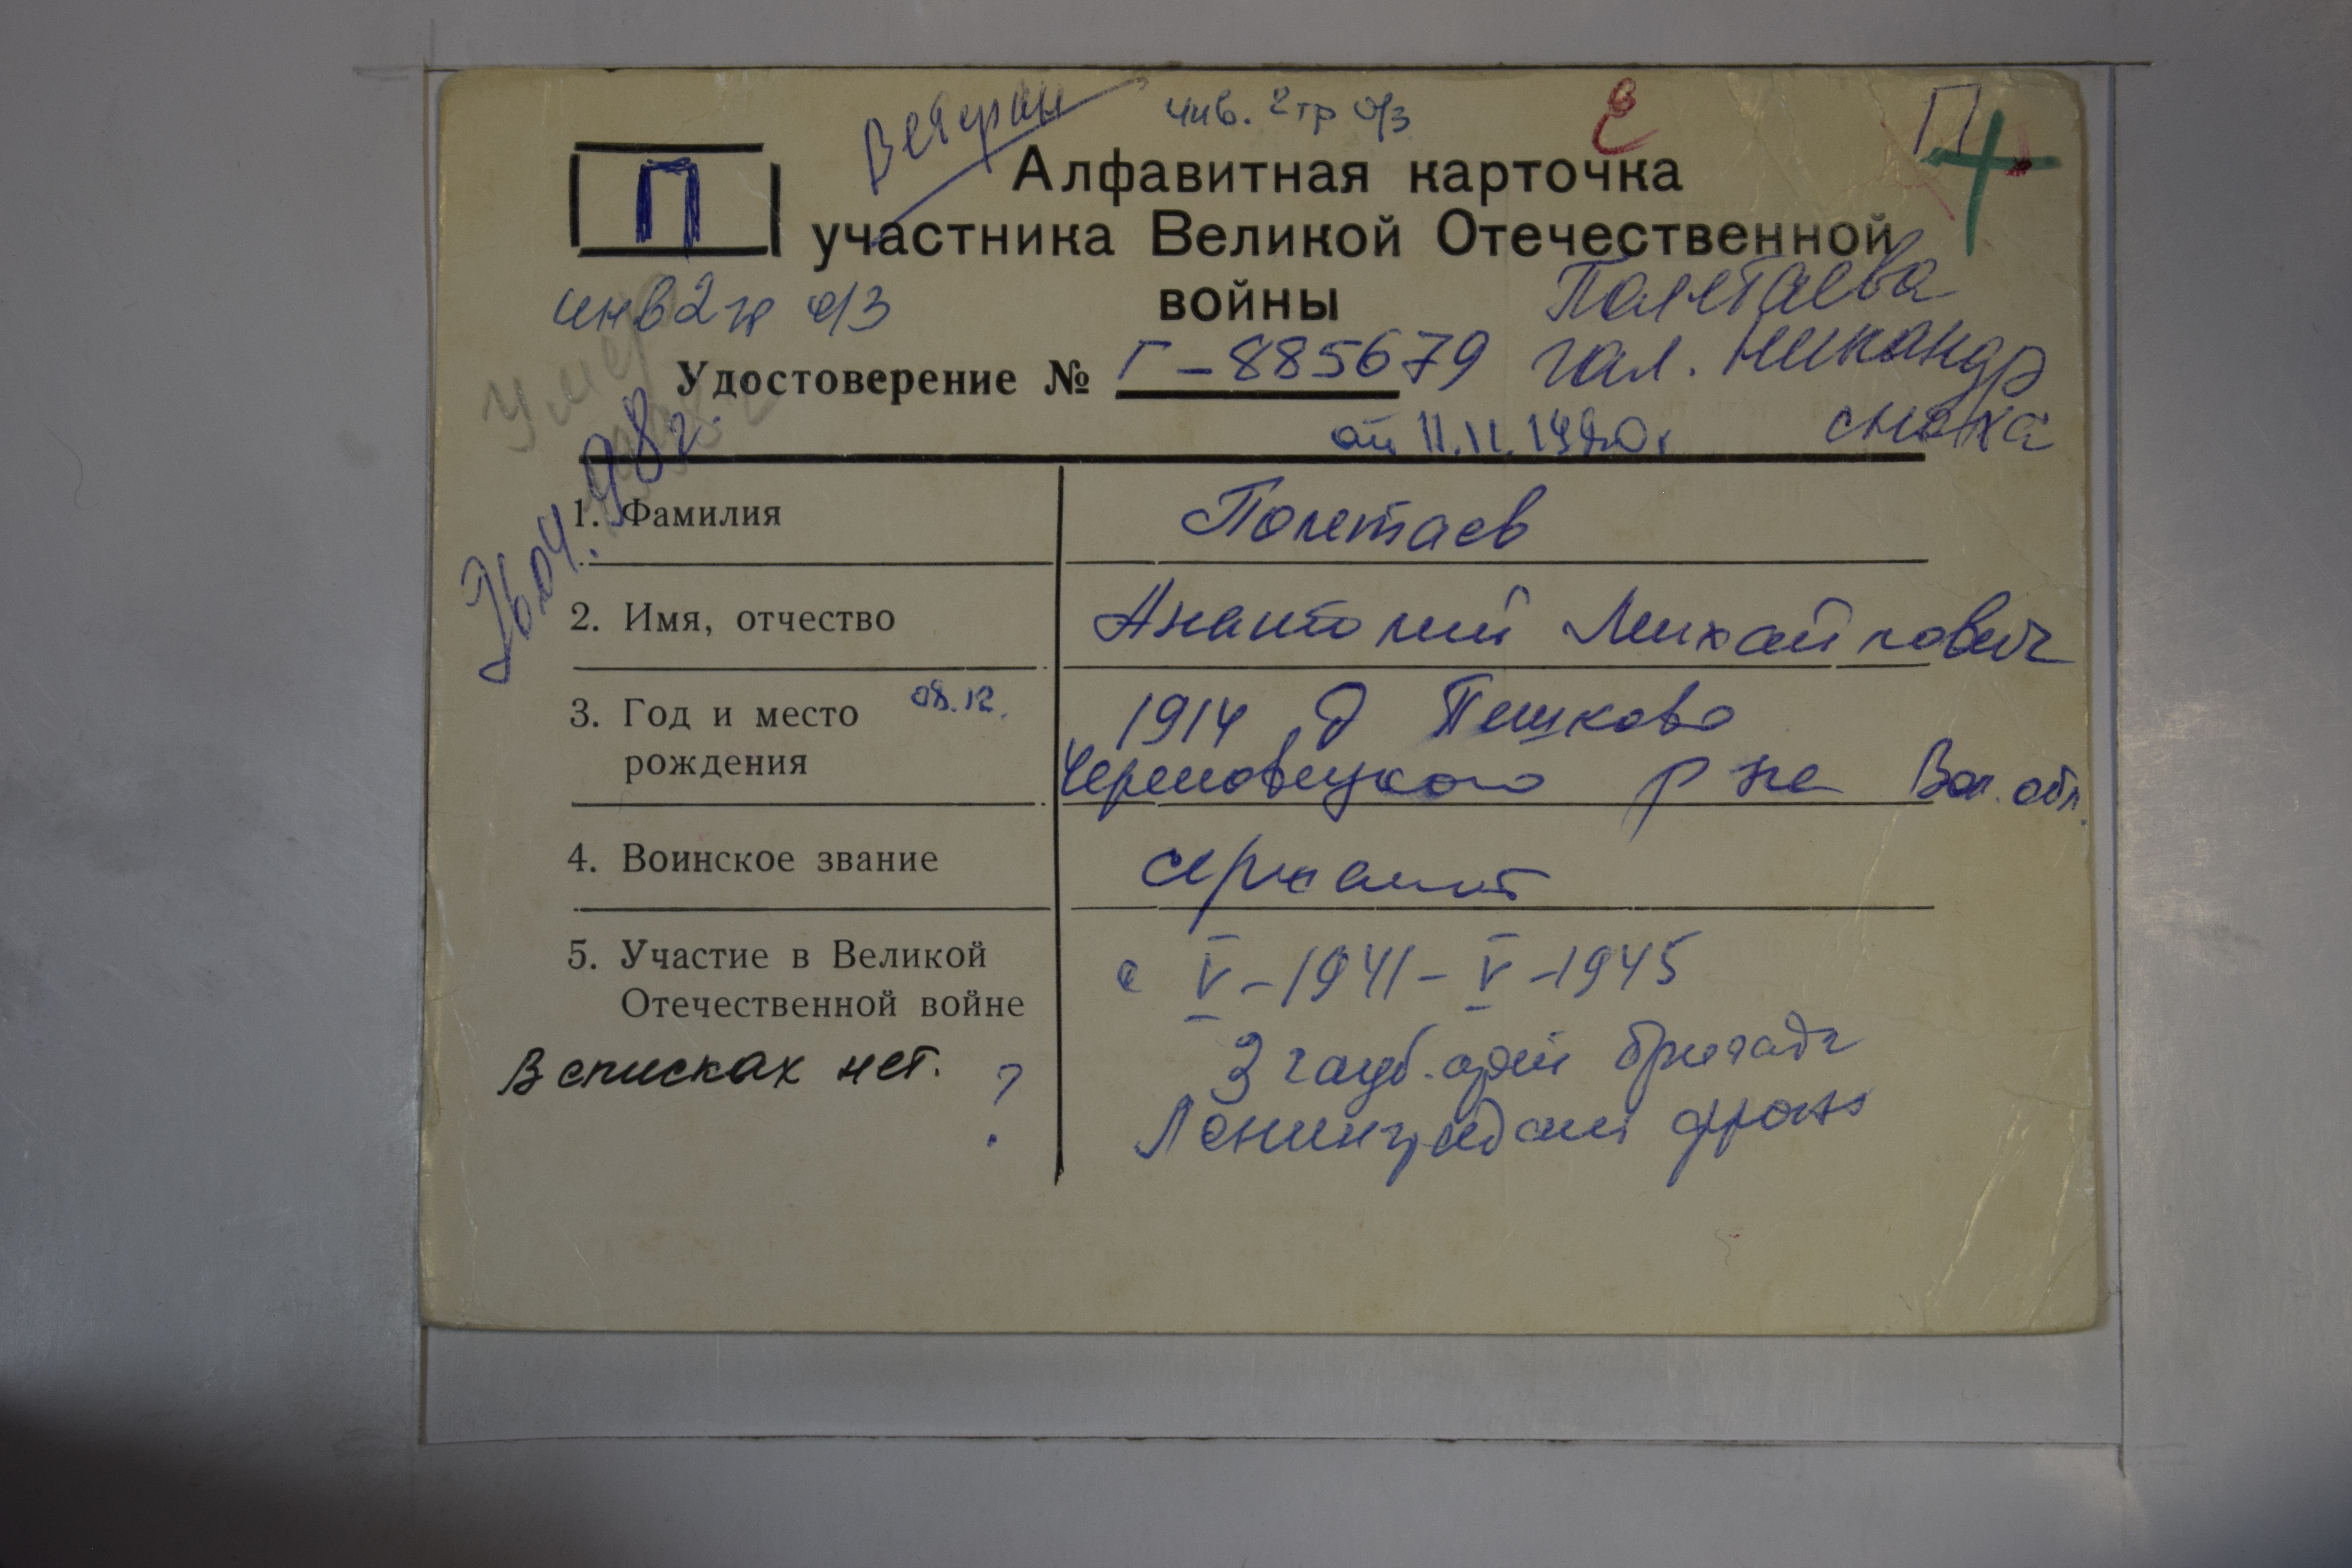 Ветеран инв. 2 гр о/з
П
П
Алфавитная карточка
участника Великой Отечественной
войны
инв 2 гр о/з
Полетаева
Гал. Никандр
сноха
Умер
Удостоверение № Г-885679
от 11.11.1980г
26.04.98г.
1. Фамилия Полетаев
2. Имя, отчество Анатолий Михайлович
3. Год и место 08.12. 1914 д Пешково
рождения Череповецкого р на Вол. обл.
4. Воинское звание сержант
5. Участие в Великой с V-1941-V-1945
Отечественной войне
В списках нет. ?
3 гауб. арт бригада
Ленинградский фронт